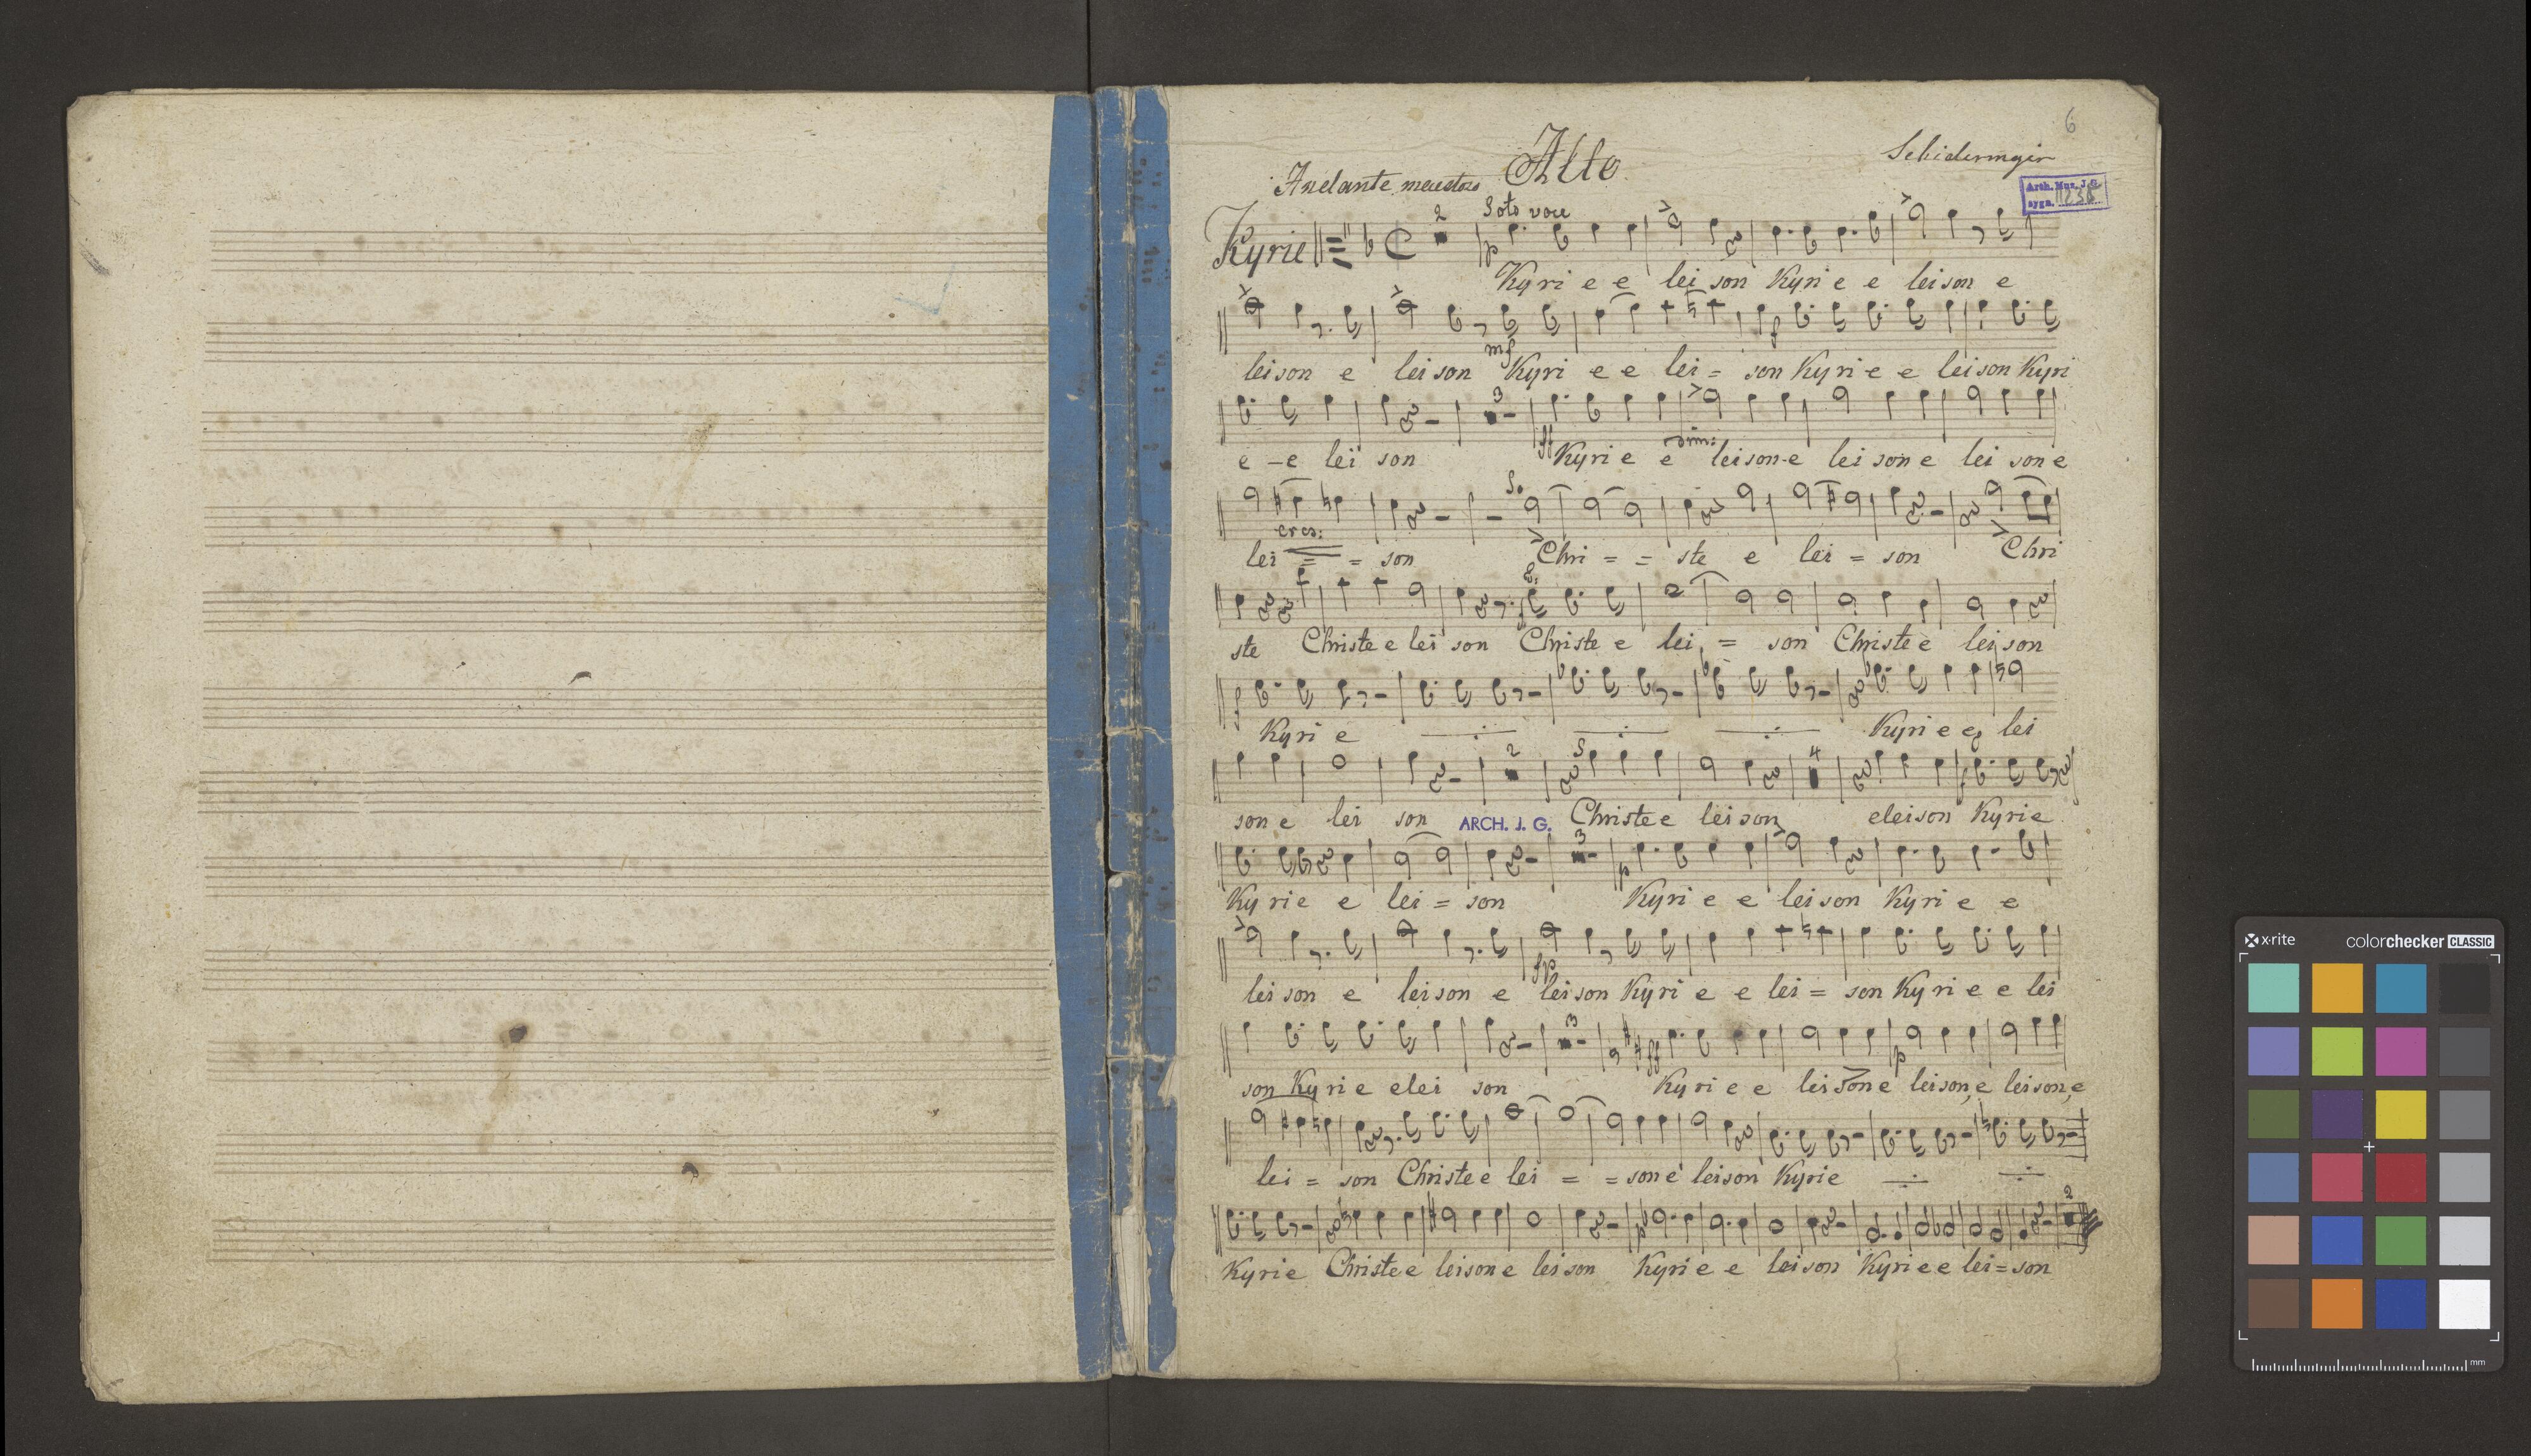 6
Alto
Schidermajer
Andante maestoso
Arch. Muz. J. G.
sygn. 1235
Soto voce
2
Kyrie
p
Kyri e e lei son Kyri e e leison e
mf
f
leison e leison Kyri e e lei = son Kyri e e leison Kyri
3
ff
dim:
e - e lei son Kyri e e leison-e lei son e lei son e
So
cres:
lei = = son Chri = = ste e lei = son Chri
ste Christe e lei son Christe e lei = son Christe e leison
f
Kyri e Kyri e e lei
2
S
4
son e lei son Christe e lei son eleison Kyrie
ARCH. J. G.
3
p
Kyrie e lei = son Kyri e e leison Kyri e e
fp
leison e leison e leison Kyri e e lei = son Kyri e e lei
3
ff
p
son Kyri e elei son Kyri e e leisone leison,e leison,e
lei = son Christe e lei = = son e leison Kyrie
p
2
Kyrie Christe e leison e leison Kyri e e leison Kyrie e lei = son
x-rite
colorchecker CLASSIC
mm